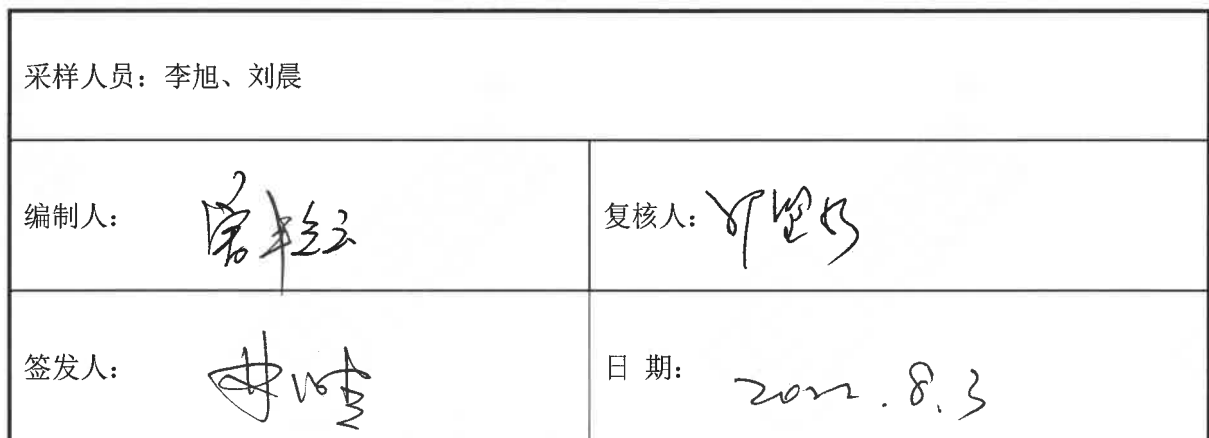 采样人员：李旭、刘晨
编制人：
复核人：
签发人：
日 期： 2022.8.3